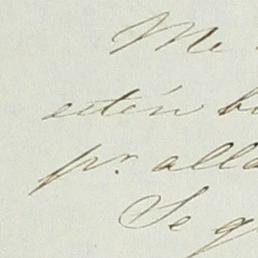 Me
estén b
pr. alla
Se q